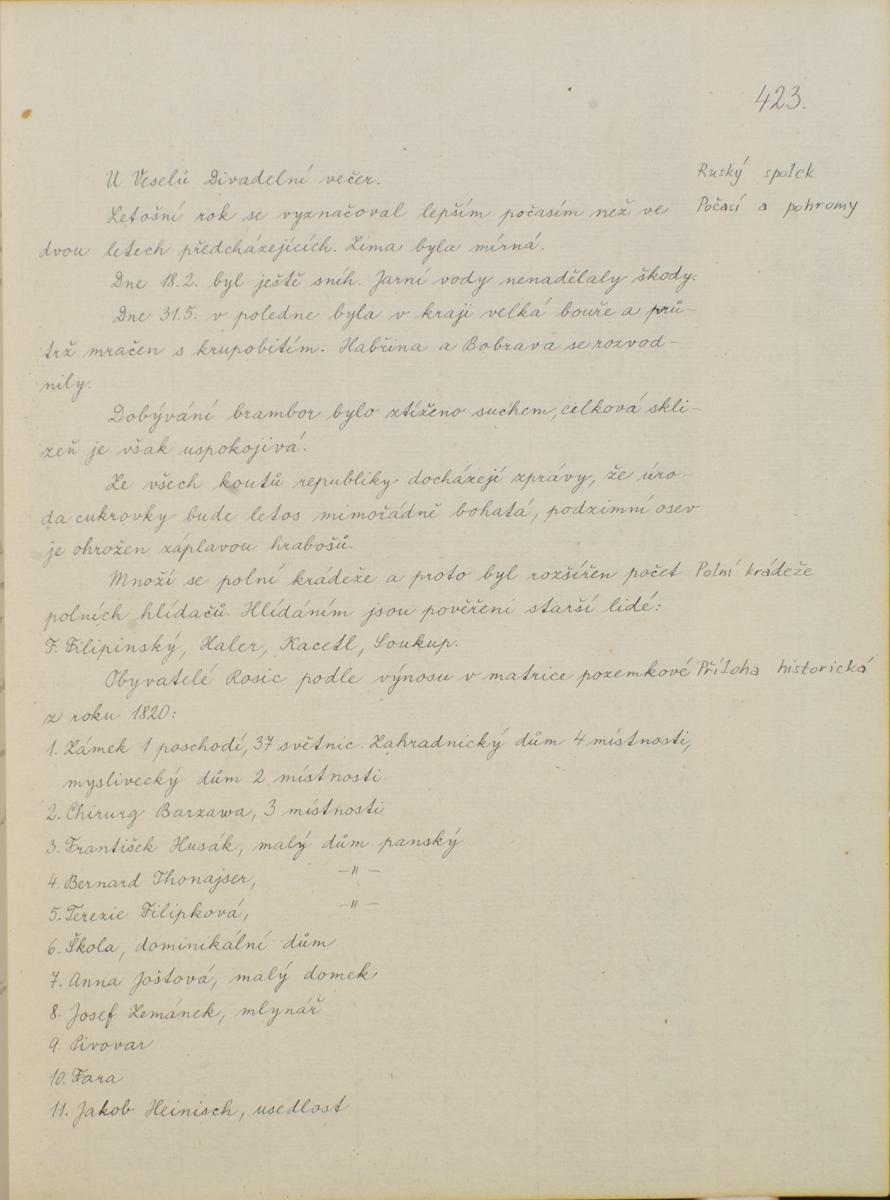 423.
U Veselů Divadelní večer. Ruský spolek
Letošní rok se vyznačoval lepším počasím než ve Počasí a pohromy
dvou letech předcházejících. Zima byla mírná.
Dne 18.2. byl ještě sníh. Jarní vody nenadělaly škody.
Dne 31.5. v poledne byla v kraji velká bouře a prů-
trž mračen s krupobitím. Habřina a Bobrava se rozvod-
nily.
Dobývání brambor bylo ztíženo suchem, celková skli-
zeň je však uspokojivá.
Ze všech koutů republiky docházejí zprávy, že úro-
da cukrovky bude letos mimořádně bohatá, podzimní osev
je ohrožen záplavou hrabošů.
Množí se polní krádeže a proto byl rozšířen počet Polní krádeže
polních hlídačů. Hlídáním jsou pověřeni starší lidé:
F. Filipinský, Haler, Kacetl, Soukup.
Obyvatelé Rosic podle výnosu v matrice pozemkové Příloha historická
z roku 1820:
1. Zámek 1 poschodí, 37 světnic. Zahradnický dům 4 místnosti,
myslivecký dům 2 místnosti
2. Chirurg Barzawa, 3 místnosti
3. František Husák, malý dům panský
4. Bernard Thonajser, -"-
5. Terezie Filipková, -"-
6. Škola, dominikální dům
7. Anna Joštová, malý domek
8. Josef Zemánek, mlynář
9. Pivovar
10. Fara
11. Jakob Heinisch, usedlost